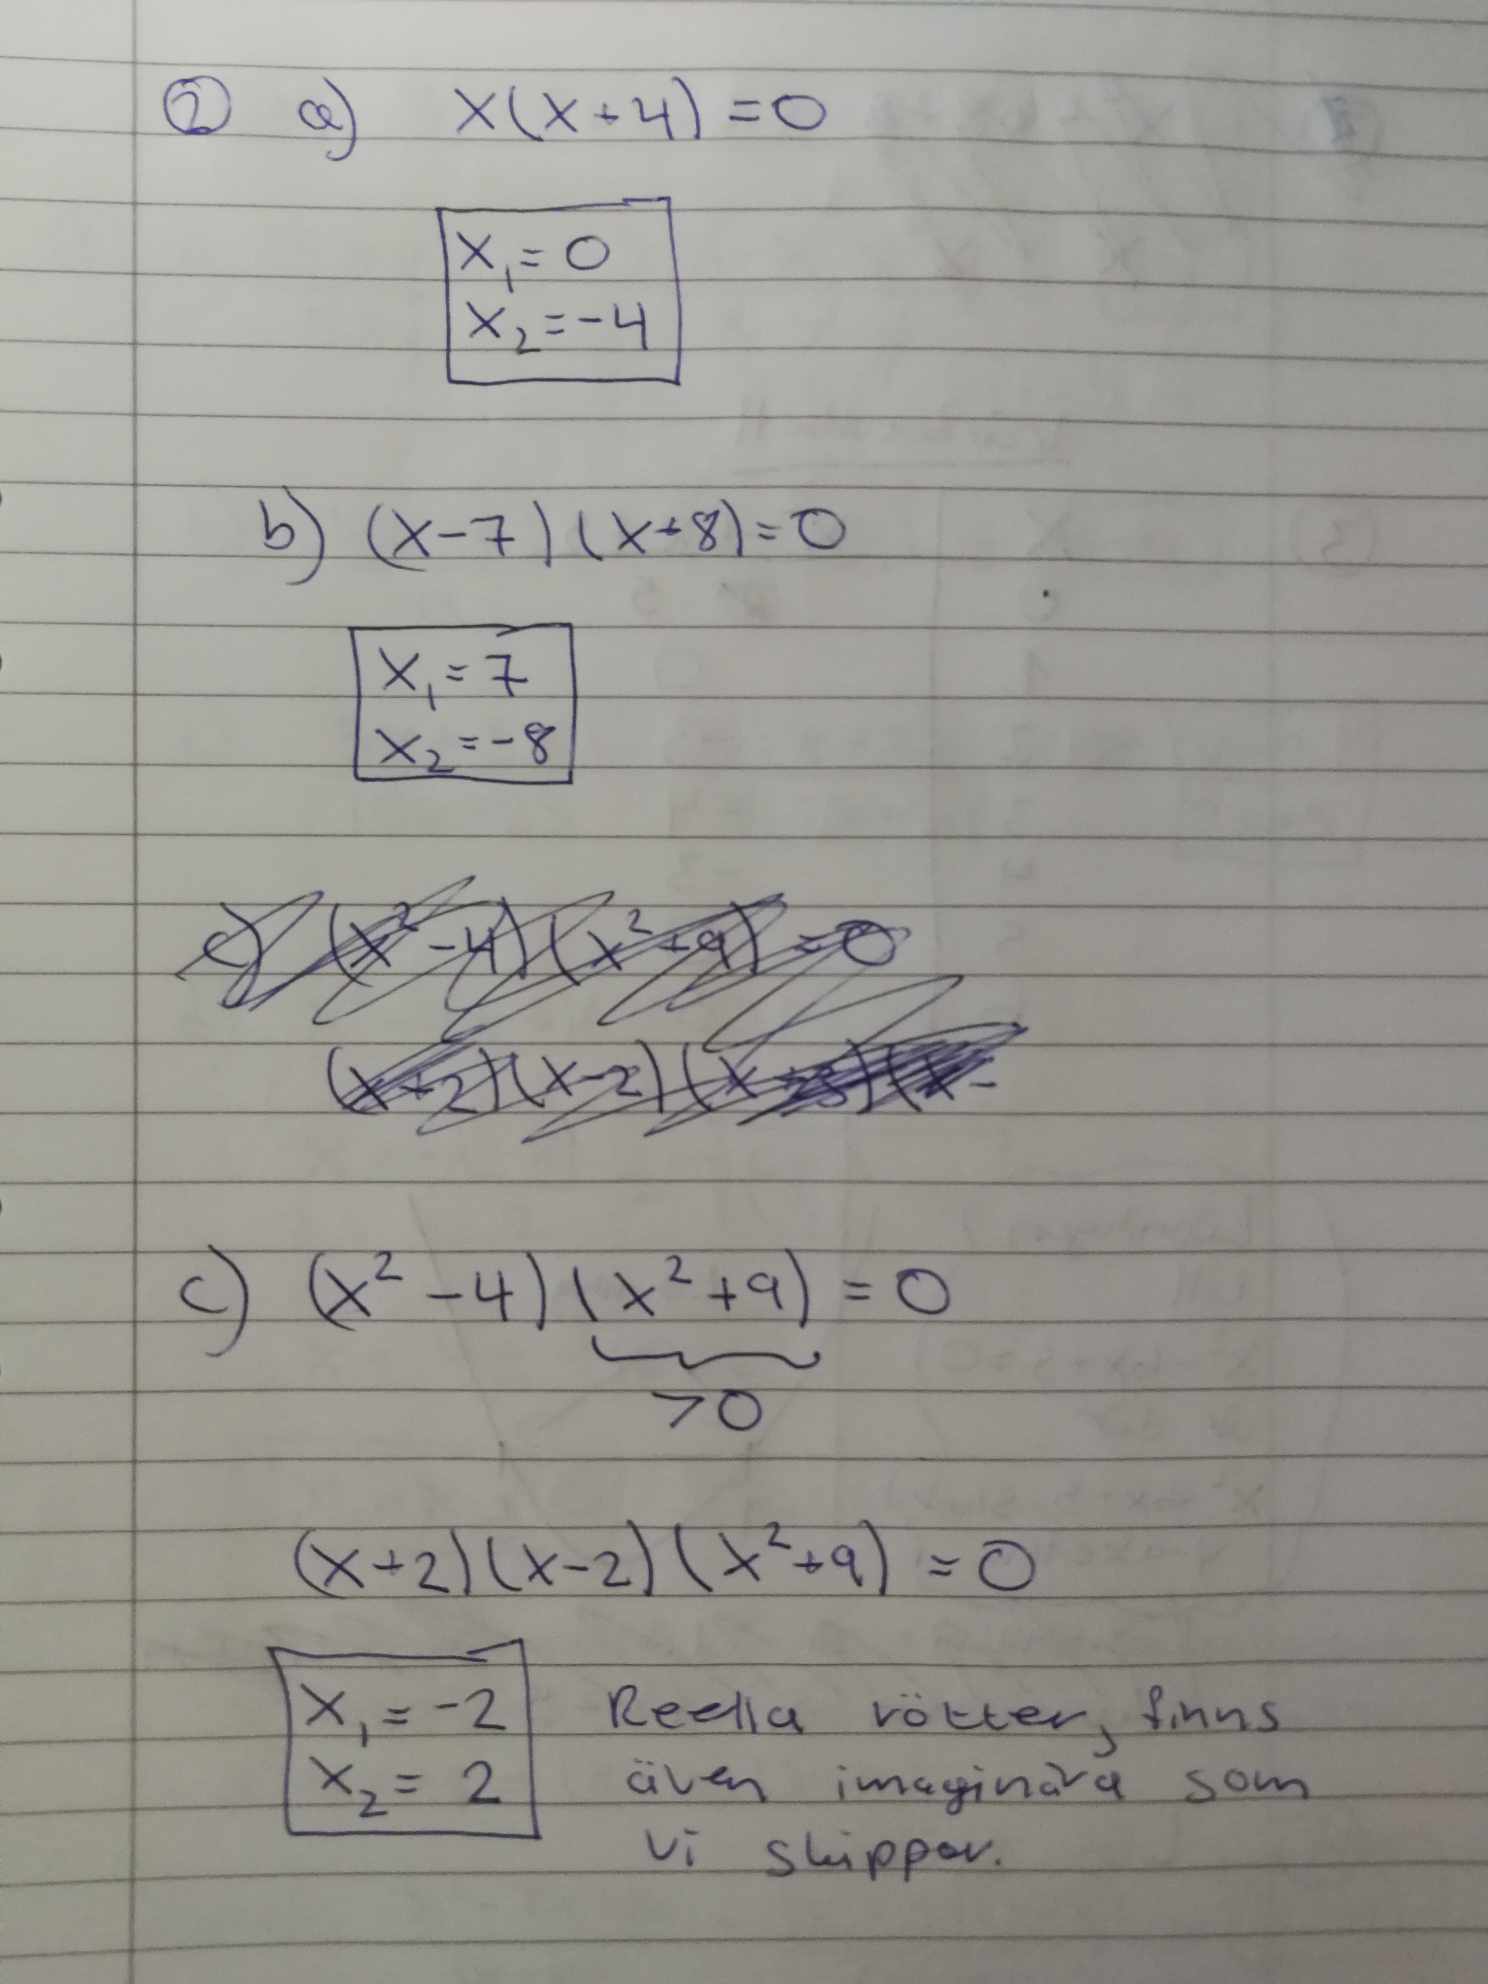 ② a) x(x+4)=0
x₁=0
x₂=-4
b) (x-7)(x+8)=0
x₁=7
x₂=-8
c) (x²-4)(x²+9)=0
(x+2)(x-2)(x+3)(x-
c) (x²-4)(x²+9)=0
>0
(x+2)(x-2)(x²+9)=0
x₁=-2 Reella rötter, finns
x₂=2 även imaginära som
vi skippar.